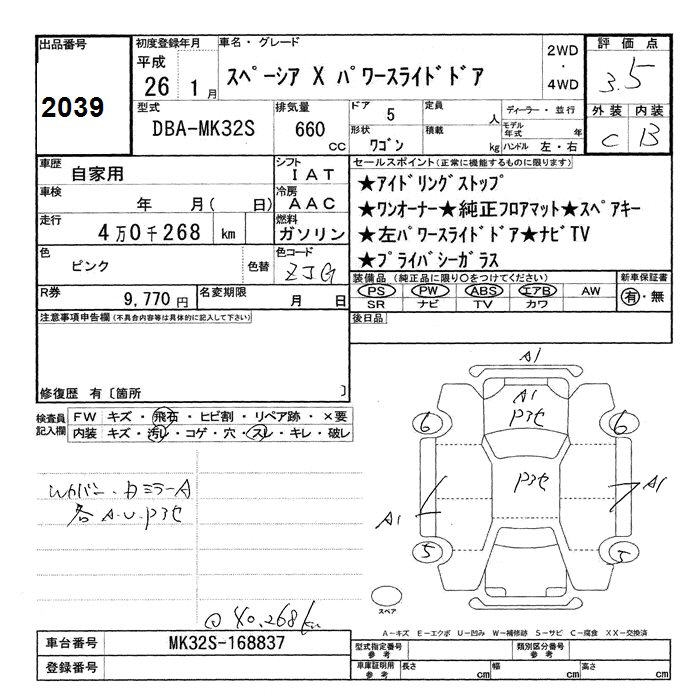 出品番号
2039
初度登録年月
平成
26 1月
車名・グレード
スペーシア X パワースライドドア
2WD
・
4WD
評価点
3.5
型式
DBA-MK32S
排気量
660 cc
ドア 5
定員 人
ディーラー・並行
モデル年式 年
形状 ワゴン
積載 kg
ハンドル 左・右
外装 内装
C B
車歴 自家用
シフト IAT
車検 年 月( 日)
冷房 AAC
走行 4万0千268 km
燃料 ガソリン
色 ピンク 色替
色コード ZJG
R券 9,770円
名変期限 月 日
セールスポイント(正常に機能するものに限ります)
★アイドリングストップ
★ワンオーナー★純正フロアマット★スペアキー
★左パワースライドドア★ナビTV
★プライバシーガラス
装備品 (純正品に限り○をつけてください)
新車保証書
PS PW ABS エアB AW
有・無
SR ナビ TV カワ
後日品
注意事項申告欄(不具合内容等は具体的に記入して下さい)
修復歴 有〔箇所 〕
検査員記入欄
FW キズ・飛石・ヒビ割・リペア跡・×要
内装 キズ・汚レ・コゲ・穴・スレ・キレ・破レ
Wカバー・カミラーA
各A.U.P3セ
@40,268km
A1
A1
P3セ
6 6
P3セ
A1 A1
5 5
スペア
A-キズ E-エクボ U-凹み W-補修跡 S-サビ C-腐食 XX-交換済
車台番号 MK32S-168837
登録番号
型式指定番号 参考
類別区分番号 参考
車庫証明用 参考
長さ cm 幅 cm 高さ cm